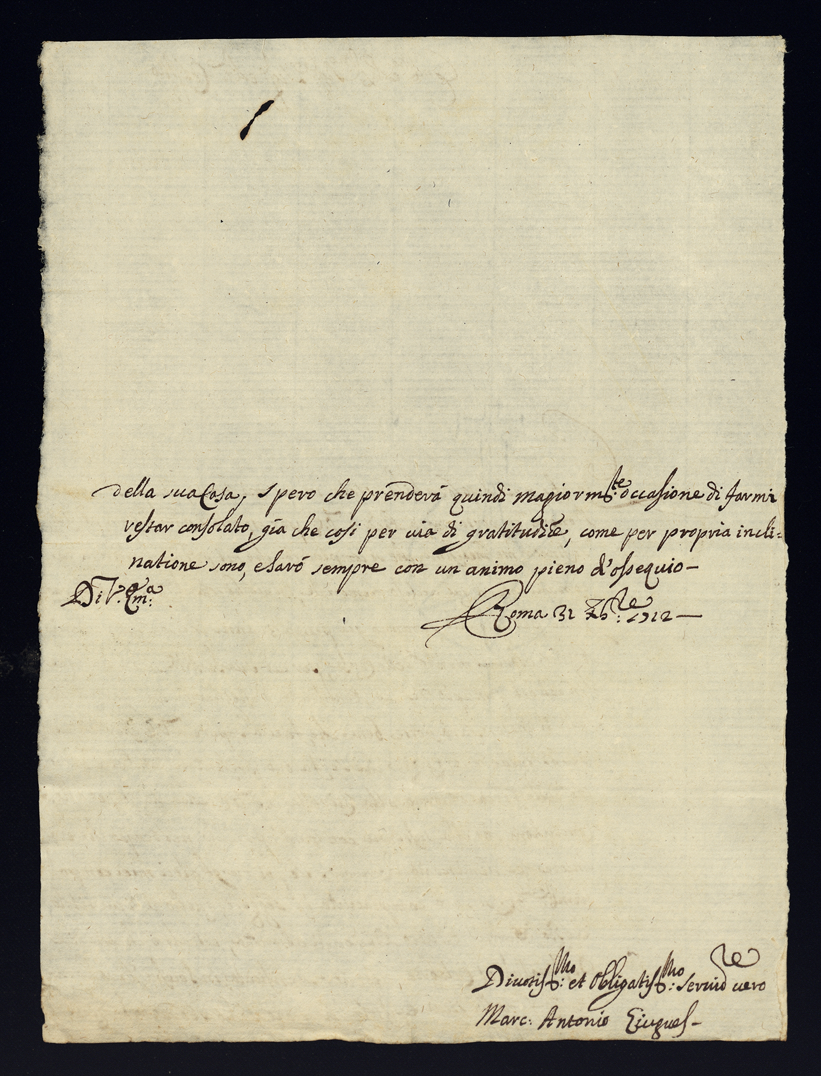 della sua Casa, spero che prenderà quindi magiorm:te occasione di farmi
restar consolato, già che così per via di gratitudine, come per propria incli=
natione sono, e sarò sempre con un animo pieno d'ossequio -
Di V. Em:a
Roma 31 Xb:re 1712 -
Divotiss:mo et Obligatiss:mo servid:re vero
Marc: Antonio